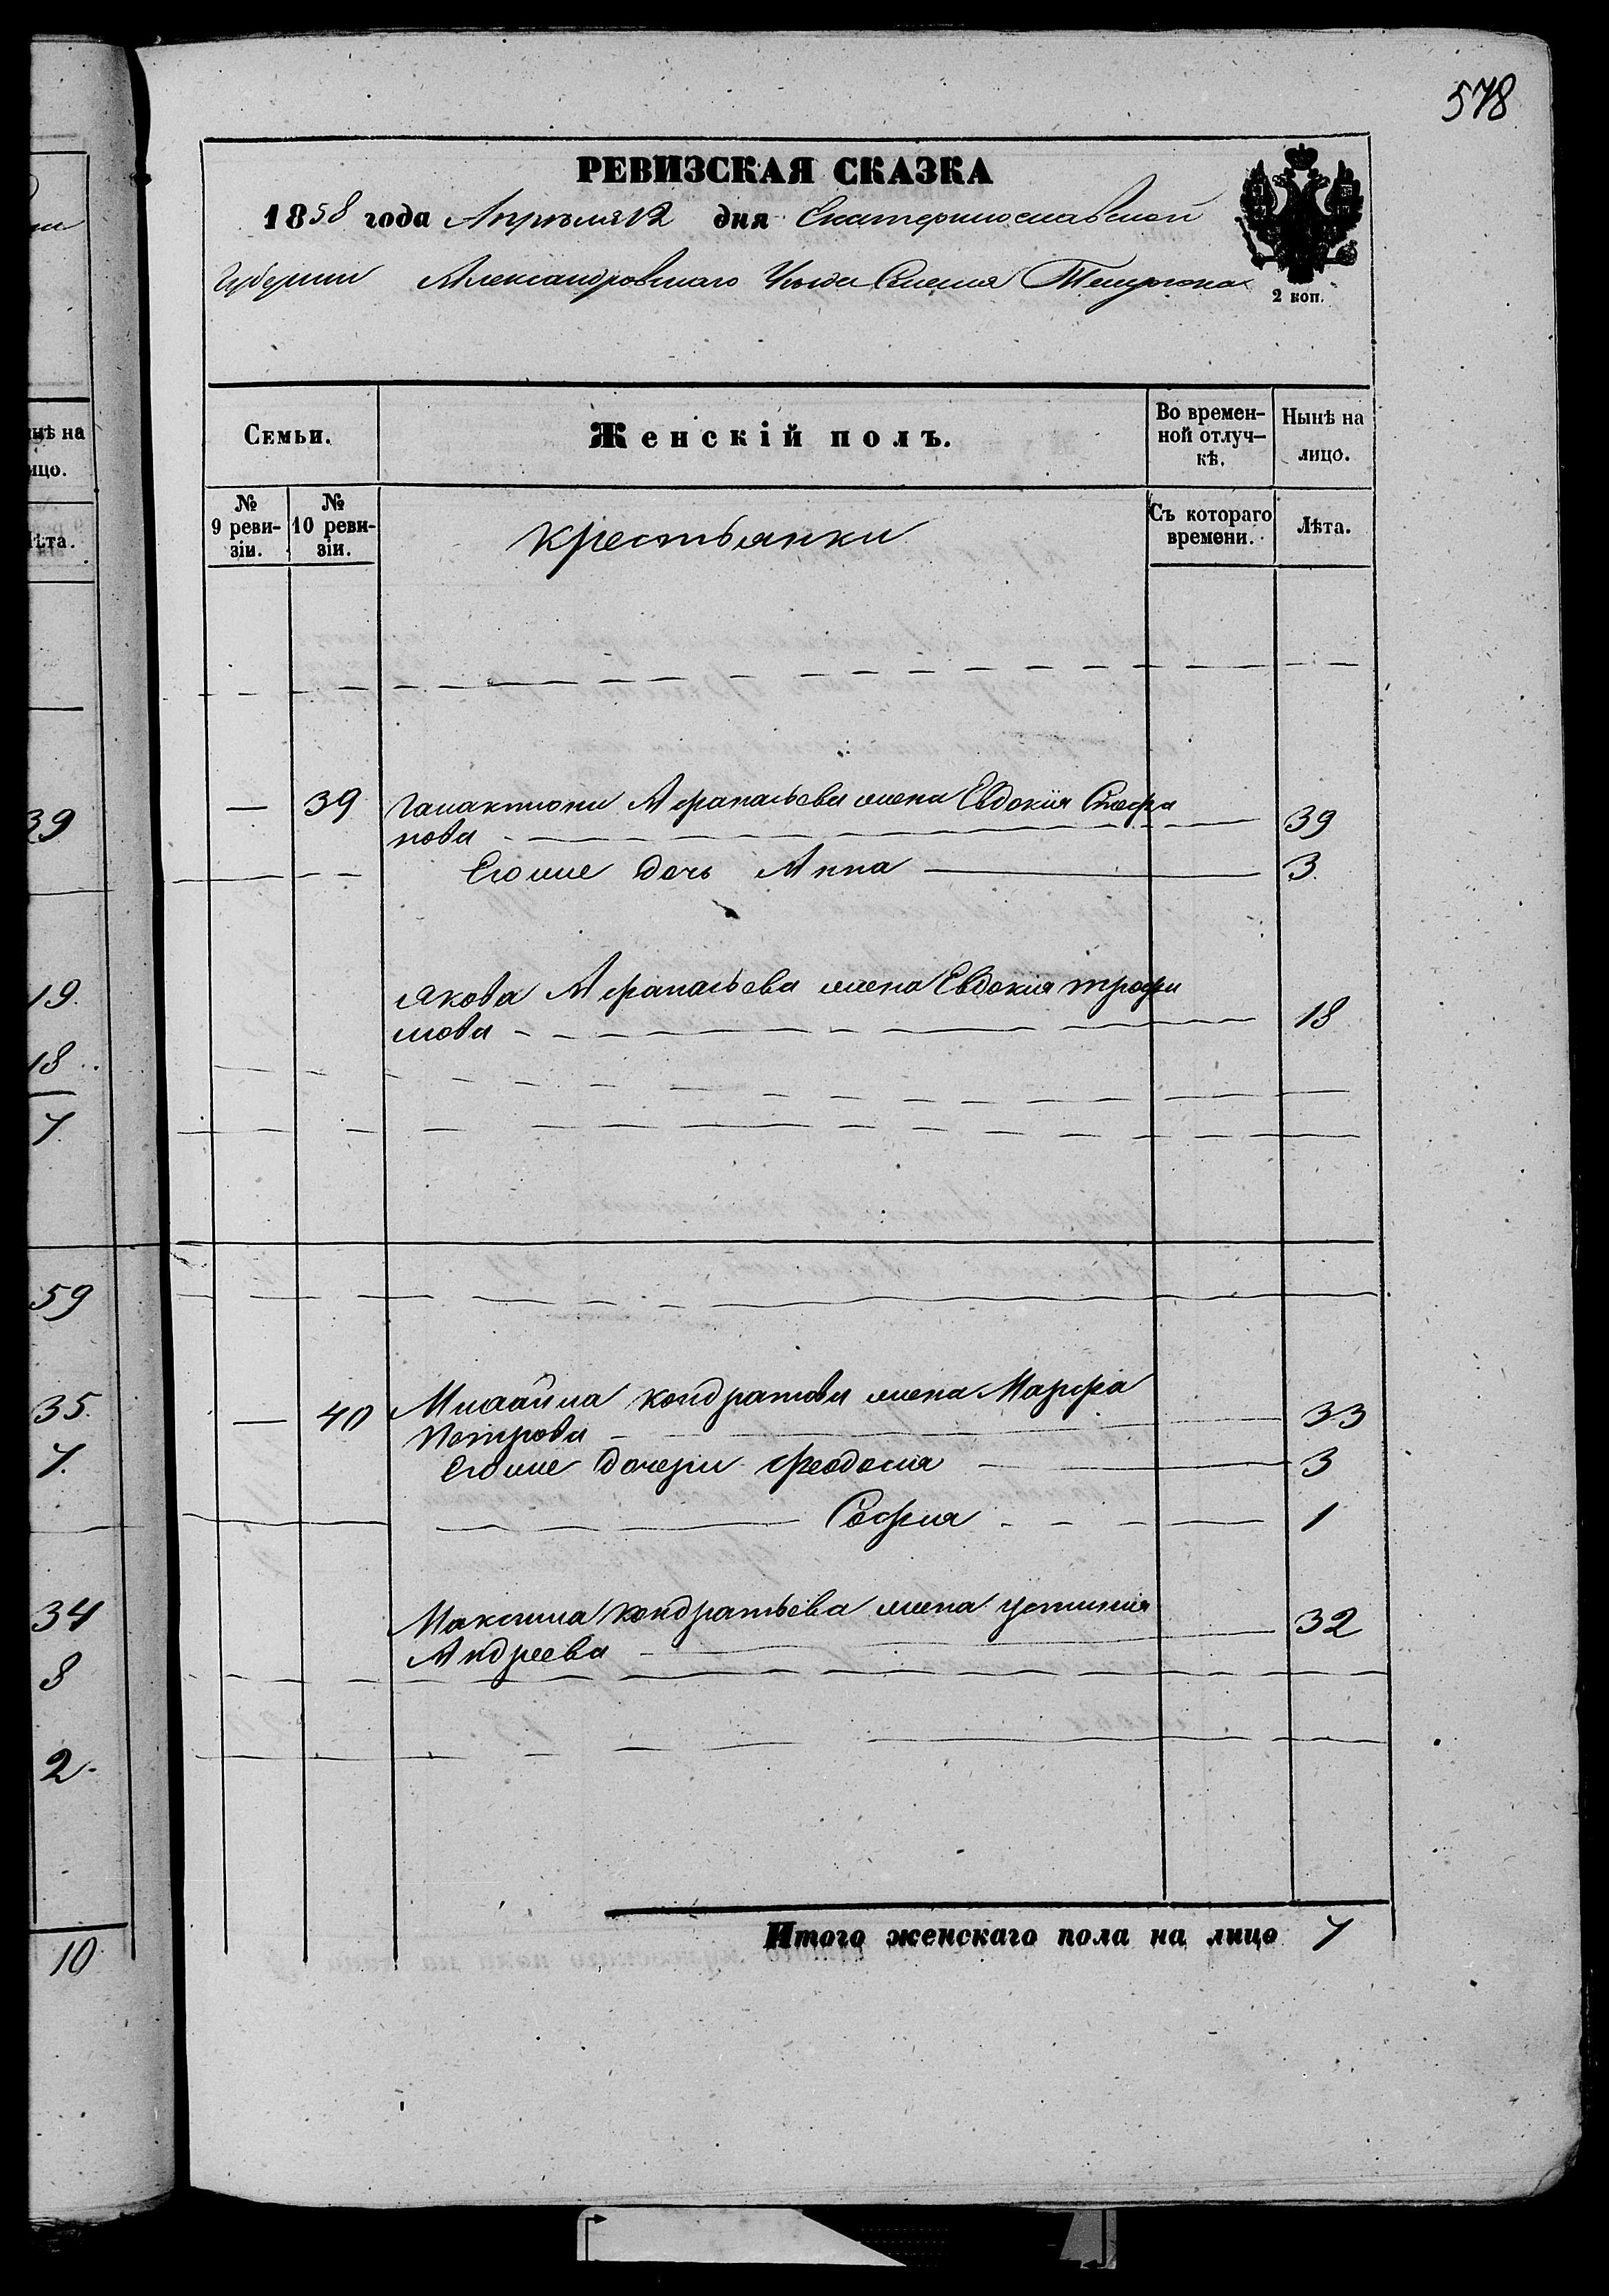 578
РЕВИЗСКАЯ СКАЗКА
1858 года Апреля 12 дня Екатеринославской
Губернии Александровского Уезда Селения
2 коп.
Семьи.
Женскій полъ.
Во времен-
ной отлуч-
кѣ.
Нынѣ на
лицо.
№
9 реви-
зіи.
№
10 реви-
зіи.
крестьянки
Съ котораго
времени.
Лѣта.
— 39 Галактиона Афанасьева жена Евдокия Стефа
нова 39
Егоже дочь Анна 3
Якова Афанасьева жена Евдокия трофи
мова 18
— 40 Михайла кондратова жена Марфа
Петрова 33
Егоже дочери Феодосия 3
София 1
Максима кондратьева жена устиния
Андреева 32
Итого женскаго пола на лицо 7
нѣ на
ицо.
ѣта.
39
19.
18
7.
59
35.
7.
34
8
2.
10